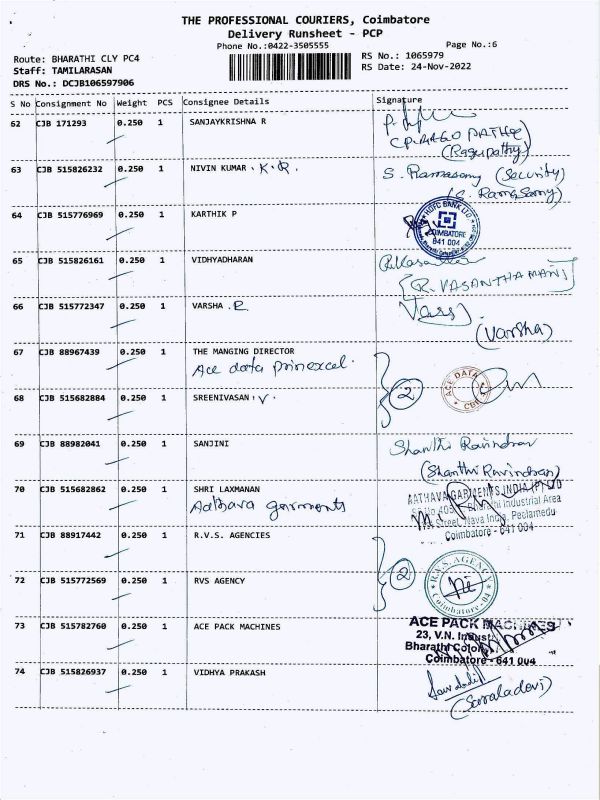 THE PROFESSIONAL COURIERS, Coimbatore
Delivery Runsheet - PCP
Phone No.:0422-3505555
Page No.:6
Route: BHARATHI CLY PC4
RS No.: 1065979
Staff: TAMILARASAN
RS Date: 24-Nov-2022
DRS No.: DCJB106597906
S No Consignment No Weight PCS Consignee Details Signature
62 CJB 171293 0.250 1 SANJAYKRISHNA R
(P. RAGOPATHE
(Ragupathy)
63 CJB 515826232 0.250 1 NIVIN KUMAR . K. R. S. Ramasamy (Security)
(S. Ramasamy)
64 CJB 515776969 0.250 1 KARTHIK P
HDFC BANK LTD.
COIMBATORE
641 004
65 CJB 515826161 0.250 1 VIDHYADHARAN
(R. VASANTHAMANI
66 CJB 515772347 0.250 1 VARSHA . R.
(Varsha)
67 CJB 88967439 0.250 1 THE MANGING DIRECTOR
Ace data prinexcel.
2
ACE DATA
68 CJB 515682884 0.250 1 SREENIVASAN . V.
69 CJB 88982041 0.250 1 SANJINI Shanthi Ravindran
(Shanthi Ravindran)
70 CJB 515682862 0.250 1 SHRI LAXMANAN
Adthava garments
AATHAVA GARMENTS INDIA (P) LTD
Bharathi Industrial Area
Street, Nava India, Peelamedu
Coimbatore - 641 004
71 CJB 88917442 0.250 1 R.V.S. AGENCIES
2
R.V.S. AGENCY
Coimbatore-04
72 CJB 515772569 0.250 1 RVS AGENCY
73 CJB 515782760 0.250 1 ACE PACK MACHINES
ACE PACK MACHINES
23, V.N. Indust
Bharathi Colony
Coimbatore - 641 004
74 CJB 515826937 0.250 1 VIDHYA PRAKASH
(Saraladevi)